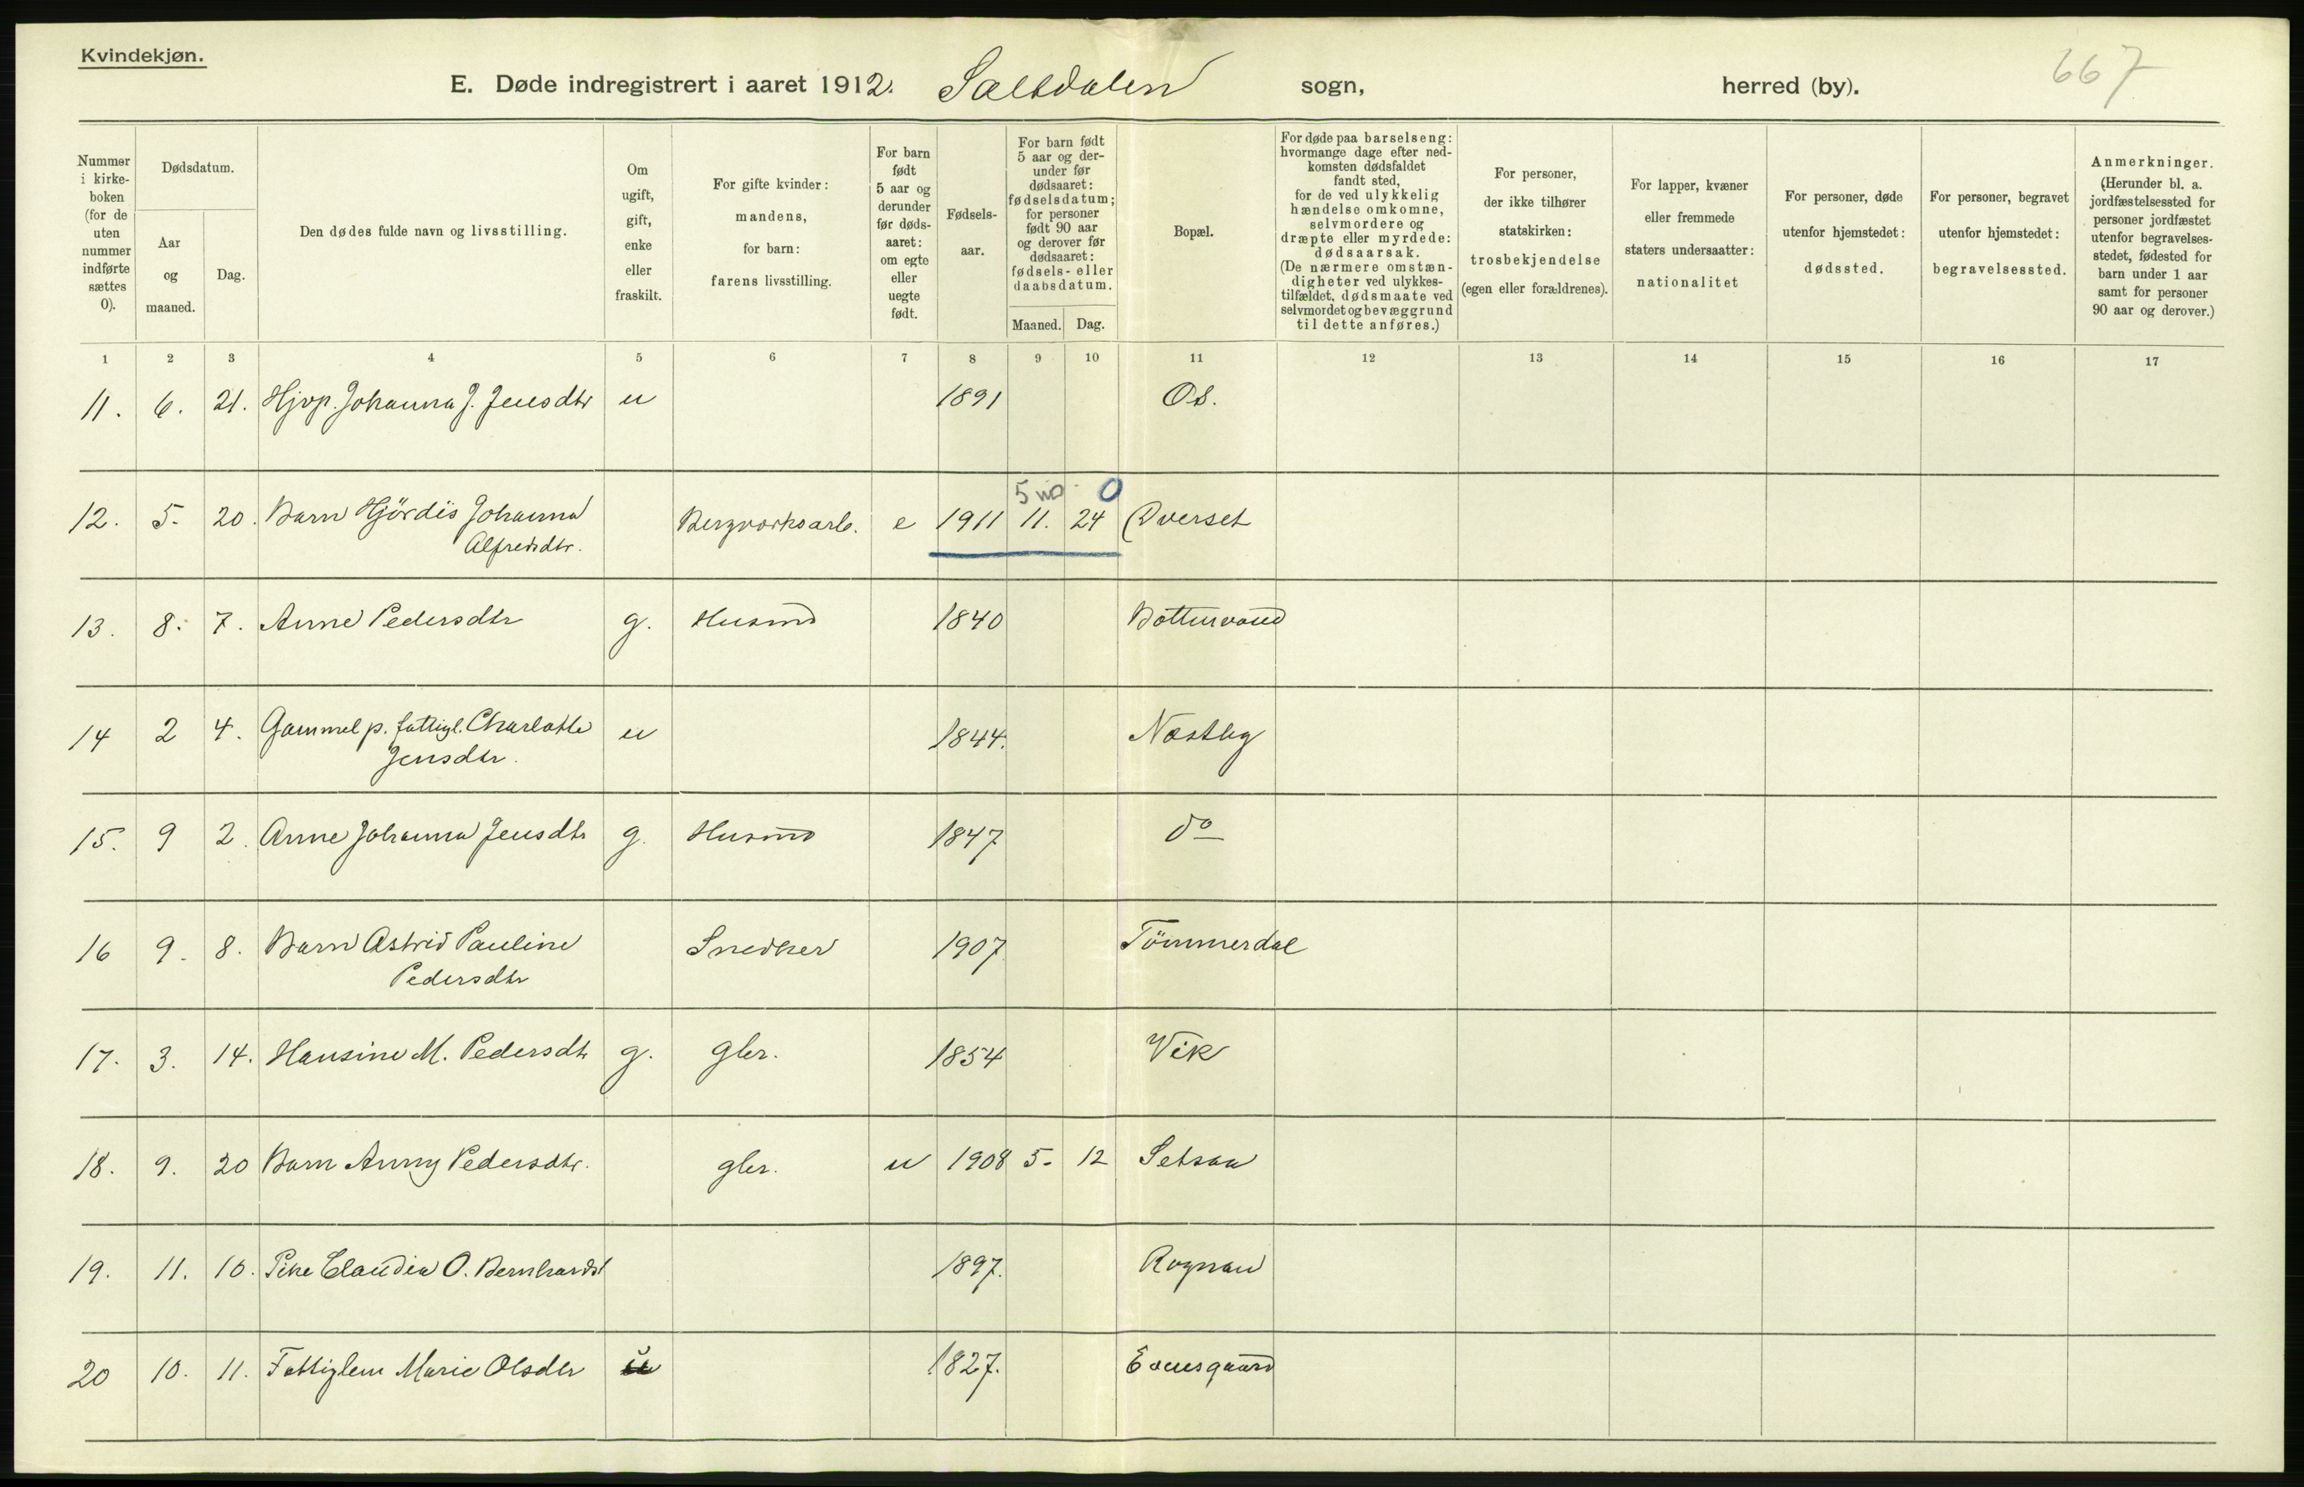 Kvindekjøn.
667
E. Døde indregistrert i aaret 1912. Saltdalen sogn, herred (by).
Nummer
i kirke-
boken
(for de
uten
nummer
indførte
sættes
0).
Dødsdatum.
Aar
og
maaned.
Dag.
Den dødes fulde navn og livsstilling.
Om
ugift,
gift,
enke
eller
fraskilt.
For gifte kvinder:
mandens,
for barn:
farens livsstilling.
For barn
født
5 aar og
derunder
før døds-
aaret:
om egte
eller
uegte
født.
Fødsels-
aar.
For barn født
5 aar og der-
under før
dødsaaret:
fødselsdatum;
for personer
født 90 aar
og derover før
dødsaaret:
fødsels- eller
daabsdatum.
Maaned.
Dag.
Bopæl.
For døde paa barselseng:
hvormange dage efter ned-
komsten dødsfaldet
fandt sted,
for de ved ulykkelig
hændelse omkomne,
selvmordere og
dræpte eller myrdede:
dødsaarsak.
(De nærmere omstæn-
digheter ved ulykkes-
tilfældet, dødsmaate ved
selvmordet og bevæggrund
til dette anføres.)
For personer,
der ikke tilhører
statskirken:
trosbekjendelse
(egen eller forældrenes).
For lapper, kvæner
eller fremmede
staters undersaatter:
nationalitet
For personer, døde
utenfor hjemstedet:
dødssted.
For personer, begravet
utenfor hjemstedet:
begravelsessted.
Anmerkninger.
(Herunder bl. a.
jordfæstelsessted for
personer jordfæstet
utenfor begravelses-
stedet, fødested for
barn under 1 aar
samt for personer
90 aar og derover.)
1 2 3 4 5 6 7 8 9 10 11 12 13 14 15 16 17
11. 6. 21. Hjvp. Johanna J. Jensdtr u 1891 Os.
5 mo 0
12. 5. 20. Barn Hjördis Johanna Bergverksarb. e 1911 11. 24 Överset
Alfredsdtr.
13. 8. 7. Anne Pedersdtr g. Husmd 1840 Botturvand
14 2 4. Gammel p. fattigl. Charlotte u 1844. Næstby
Jensdtr.
15. 9 2. Anne Johanna Jensdtr g. Husmd 1847 do
16 9. 8. Barn Astrid Pauline Snedker 1907 Tömmerdal
Pedersdtr
17. 3. 14. Hansine M. Pedersdtr g. gbr. 1854 Vik
18. 9. 20 Barn Anny Pedersdtr. gbr. u 1908 5. 12 Setsaa
19. 11. 10. Pike Claudia O. Bernhardst 1897. Rognan
20 10. 11. Fattiglem Marie Olsdtr u 1827. Evensgaard